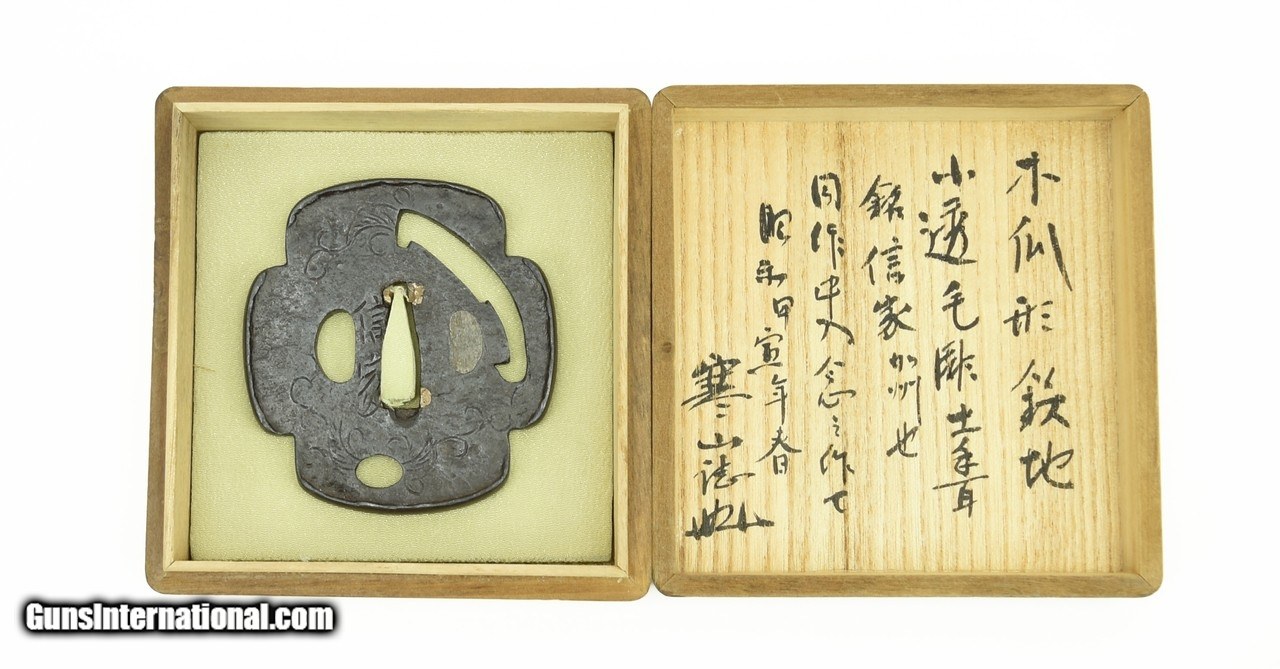 信家
木瓜形鉄地
小透毛彫土手耳
銘信家加州也
同作中入念之作也
昭和甲寅年春日
寒山誌
GunsInternational.com